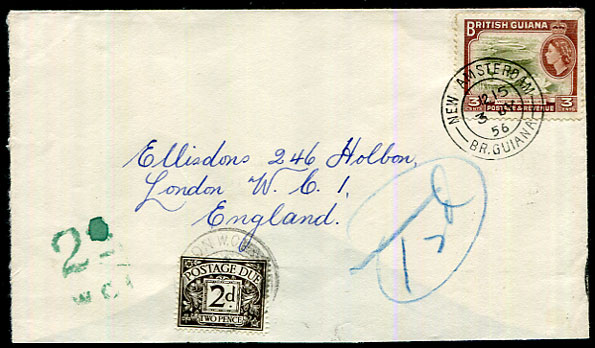 BRITISH GUIANA
3 CENTS POSTAGE & REVENUE 3 CENTS
NEW AMSTERDAM
12 15
3
56
BR. GUIANA
Ellisdons 246 Holbon,
London W. C. 1,
England.
2D
W C 1
ON W.C.
POSTAGE DUE
2d
TWO PENCE